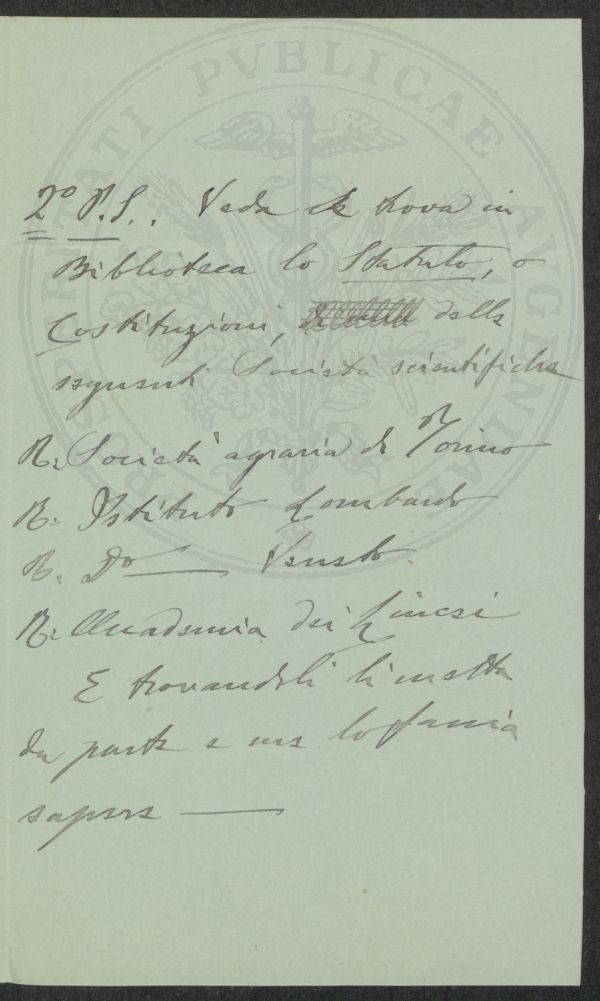 PROSPERITATI PVBLICAE AVGENDAE
2º P.S.. Veda se trova in
Biblioteca lo Statuto, o
Costituzioni, delle
seguenti Società scientifiche
R: Società agraria di Torino
R. Istituto Lombardo
R. Dº —— Veneto
R: Accademia dei Lincei
E trovandoli li metta
da parte e me lo faccia
sapere ——